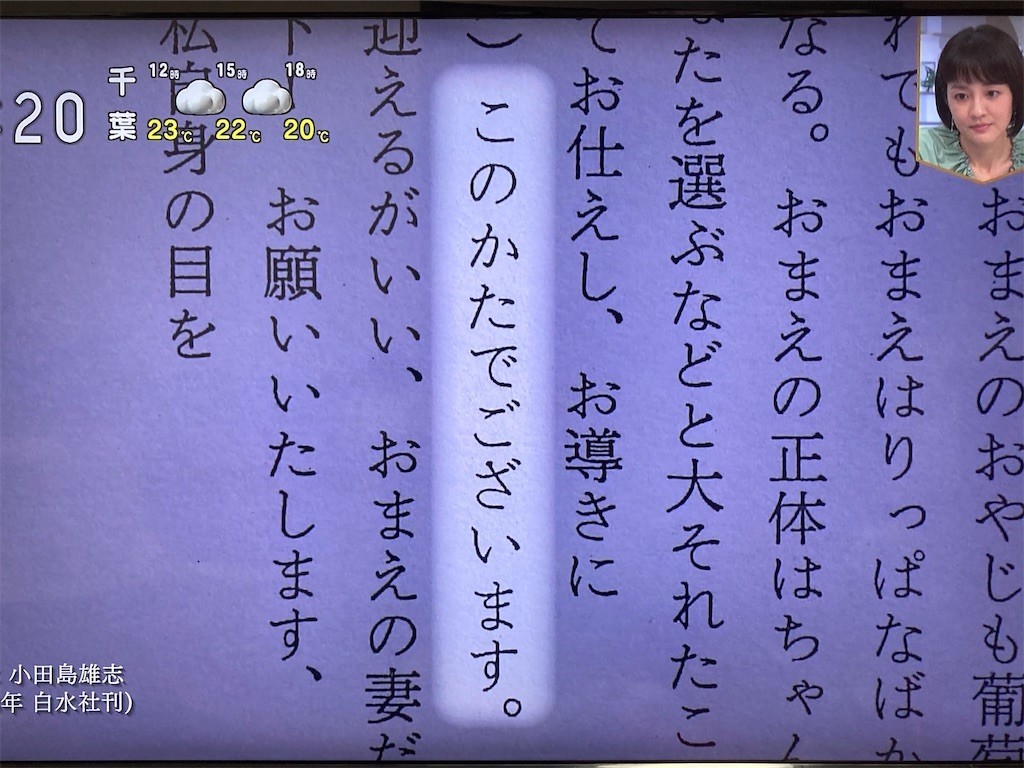 :20
千葉
12時 15時 18時
23℃ 22℃ 20℃
おまえのおやじも葡萄
れてもおまえはりっぱなばか
なる。 おまえの正体はちゃん
なたを選ぶなどと大それたこ
てお仕えし、お導きに
）このかたでございます。
迎えるがいい、おまえの妻だ
お願いいたします、
私自身の目を
小田島雄志
年 白水社刊)